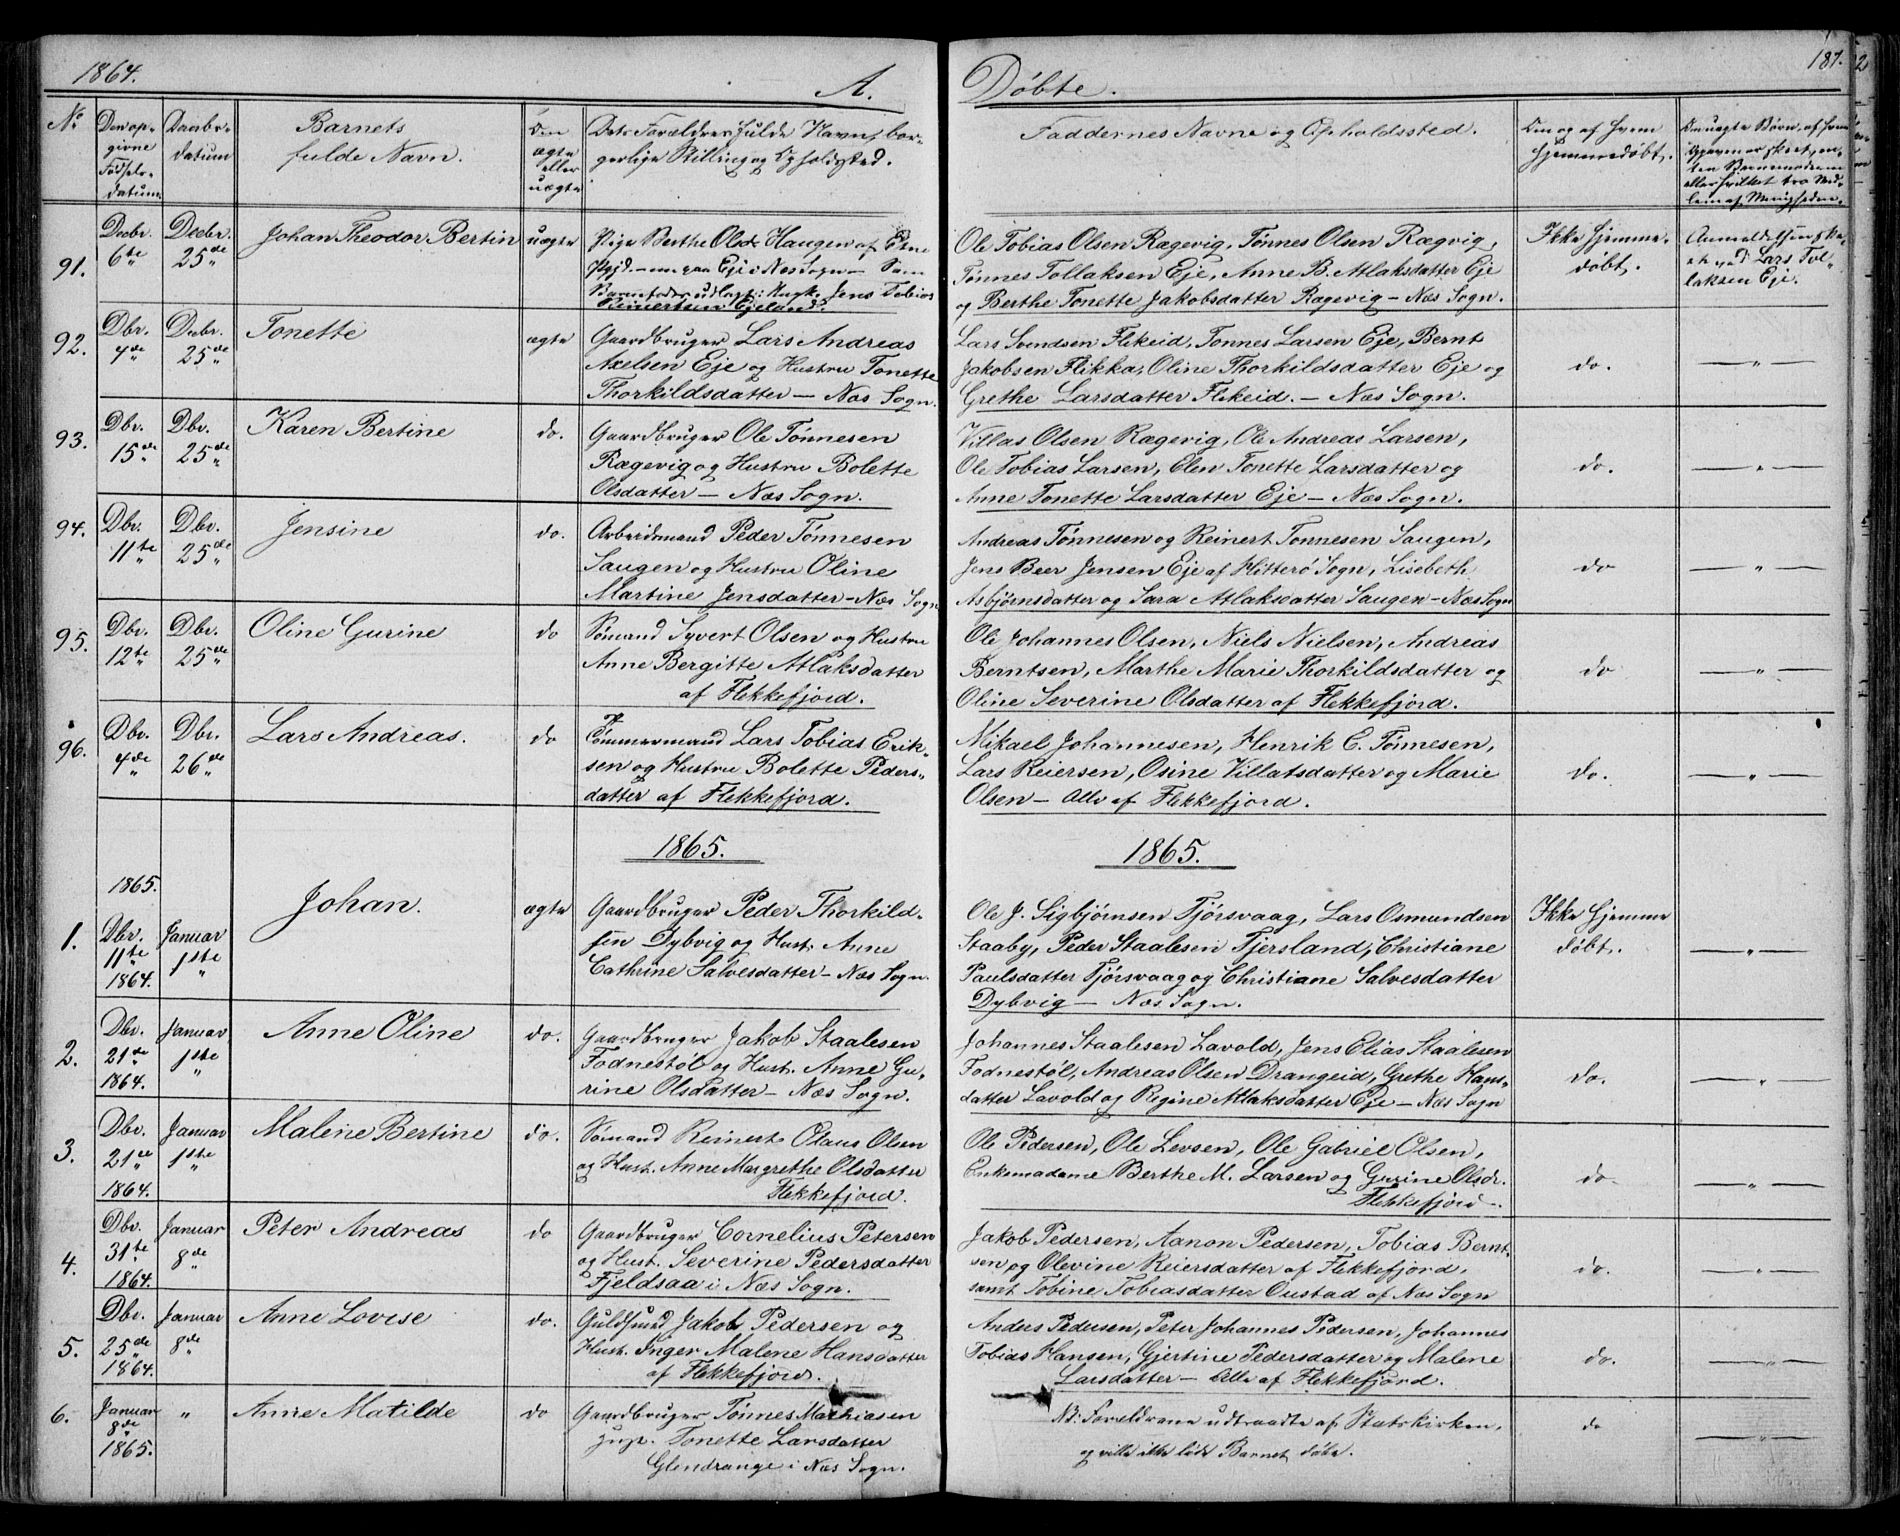 1864.
A.
Døbte.
187.
No
Den op-
givne
Fødsels-
datum
Daabs-
datum
Barnets
fulde Navn.
Om
ægte
eller
uægte
Dets Forældres fulde Navn, bor-
gerlige Stilling og Opholdssted.
Faddernes Navne og Opholdssted.
Om og af hvem
hjemmedøbt.
91.
Decbr.
6te
Decbr.
25de
Johan Theodor Bertin
uægte
Pige Berthe Olsdr Haugen af Etne
Pgjd. — nu paa Eje i Næs Sogn — Som
Barnefader udlagt: Ungk. Jens Tobias
Reinertsen Ejeland.
Ole Tobias Olsen Rægevig, Tønnes Olsen Rægvig,
Tønnes Tollaksen Eje, Anne B. Atlaksdatter Eje
og Berthe Tonette Jakobsdatter Rægevig — Næs Sogn.
Ikke hjemme-
døbt.
Anmeldelsen ske-
et ved Lars Tol-
laksen Eje.
92.
Dbr.
4de
Decbr.
25de
Tonette
ægte
Gaardbruger Lars Andreas
Axelsen Eje og Hustru Tonette
Thorkildsdatter — Næs Sogn.
Lars Svendsen Flikeid, Tønnes Larsen Eje, Bernt
Jakobsen Flikka, Oline Thorkildsdatter Eje og
Grethe Larsdatter Flikeid. — Næs Sogn.
do.
— " —
93.
Dbr.
15de
Dbr.
25de
Karen Bertine
do.
Gaardbruger Ole Tønnesen
Rægevig og Hustru Bolette
Olsdatter — Næs Sogn.
Villas Olsen Rægevig, Ole Andreas Larsen,
Ole Tobias Larsen, Elen Tonette Larsdatter og
Anne Tonette Larsdatter Eje — Næs Sogn.
do.
— " —
94.
Dbr.
11te
Dbr.
25de
Jensine
do.
Arbeidsmand Peder Tønnesen
Saugen og Hustru Oline
Martine Jensdatter — Næs Sogn
Andreas Tønnesen og Reinert Tønnesen Saugen,
Jens Beer Jensen Eje af Hitterø Sogn, Lisebeth
Asbjørnsdatter og Sara Atlaksdatter Saugen — Næs Sogn
do
— " —
95.
Dbr.
12te
Dbr.
25de
Oline Gurine
do
Sømand Syvert Olsen og Hustru
Anne Bergitte Atlaksdatter
af Flekkefjord.
Ole Johannes Olsen, Niels Nielsen, Andreas
Berntsen, Marthe Marie Thorkildsdatter og
Oline Severine Olsdatter af Flekkefjord.
do
— " —
96.
Dbr.
4de
Dbr.
26de
Lars Andreas.
do
Tømmermand Lars Tobias Erik-
sen og Hustru Bolette Peders-
datter af Flekkefjord.
Mikael Johannesen, Henrik C. Tønnesen,
Lars Reiersen, Osine Villatsdatter og Marie
Olsen — Alle af Flekkefjord.
do.
— " —
1865.
1865.
1865.
1.
Dbr.
11te
1864.
Januar
1ste
Johan.
ægte
Gaardbruger Peder Thorkild-
sen Dybvig og Hust. Anne
Cathrine Salvesdatter — Næs Sogn.
Ole J. Sigbjørnsen Tjørsvaag, Lars Osmundsen
Staaby, Peder Staalesen Tjersland, Christiane
Paulsdatter Tjørsvaag og Christiane Salvesdatter
Dybvig — Næs Sogn.
Ikke hjemme
døbt.
— " —
2.
Dbr.
21de
1864.
Januar
1ste
Anne Oline
do.
Gaardbruger Jakob Staalesen
Fodnestøl og Hust. Anne Gu-
rine Olsdatter — Næs Sogn.
Johannes Staalesen Lavold, Jens Elias Staalesen
Fodnestøl, Andreas Olsen Drangeid, Grethe Hans-
datter Lavold og Regine Atlaksdatter Eje — Næs Sogn
do.
— " —
3.
Dbr.
21de
1864.
Januar
1ste
Malene Bertine
do.
Sømand Reinert Olaus Olsen
og Hust. Anne Margrethe Olsdatter
Flekkefjord.
Ole Pedersen, Ole Levsen, Ole Gabriel Olsen,
Enkemadame Berthe M. Larsen og Gurine Olsdr.
Flekkefjord —.
do.
— " —
4.
Dbr.
31te
1864.
Januar
8de
Peter Andreas
do
Gaardbruger Cornelius Petersen
og Hust. Severine Pedersdatter
Fjeldsaa i Næs Sogn.
Jakob Pedersen, Aanon Pedersen, Tobias Bernt-
sen og Olevine Reiersdatter af Flekkefjord,
samt Tobine Tobiasdatter Oustad af Næs Sogn
do.
— " —
5.
Dbr.
25de
1864.
Januar
8de
Anne Lovise
do.
Guldsmed Jakob Pedersen og
Hust. Inger Malene Hansdatter
af Flekkefjord.
Anders Pedersen, Peter Johannes Pedersen, Johannes
Tobias Hansen, Gjertine Pedersdatter og Malene
Larsdatter — Alle af Flekkefjord.
do.
— " —
6.
Januar
8de
1865.
"
Anne Matilde
do
Gaardbruger Tønnes Mathiasen
Tonette Larsdatter
Glendrange i Næs Sogn.
NB: Forældrene udtraadte af Statskirken,
og ville ikke lade Barnet døbe.
do
— " —